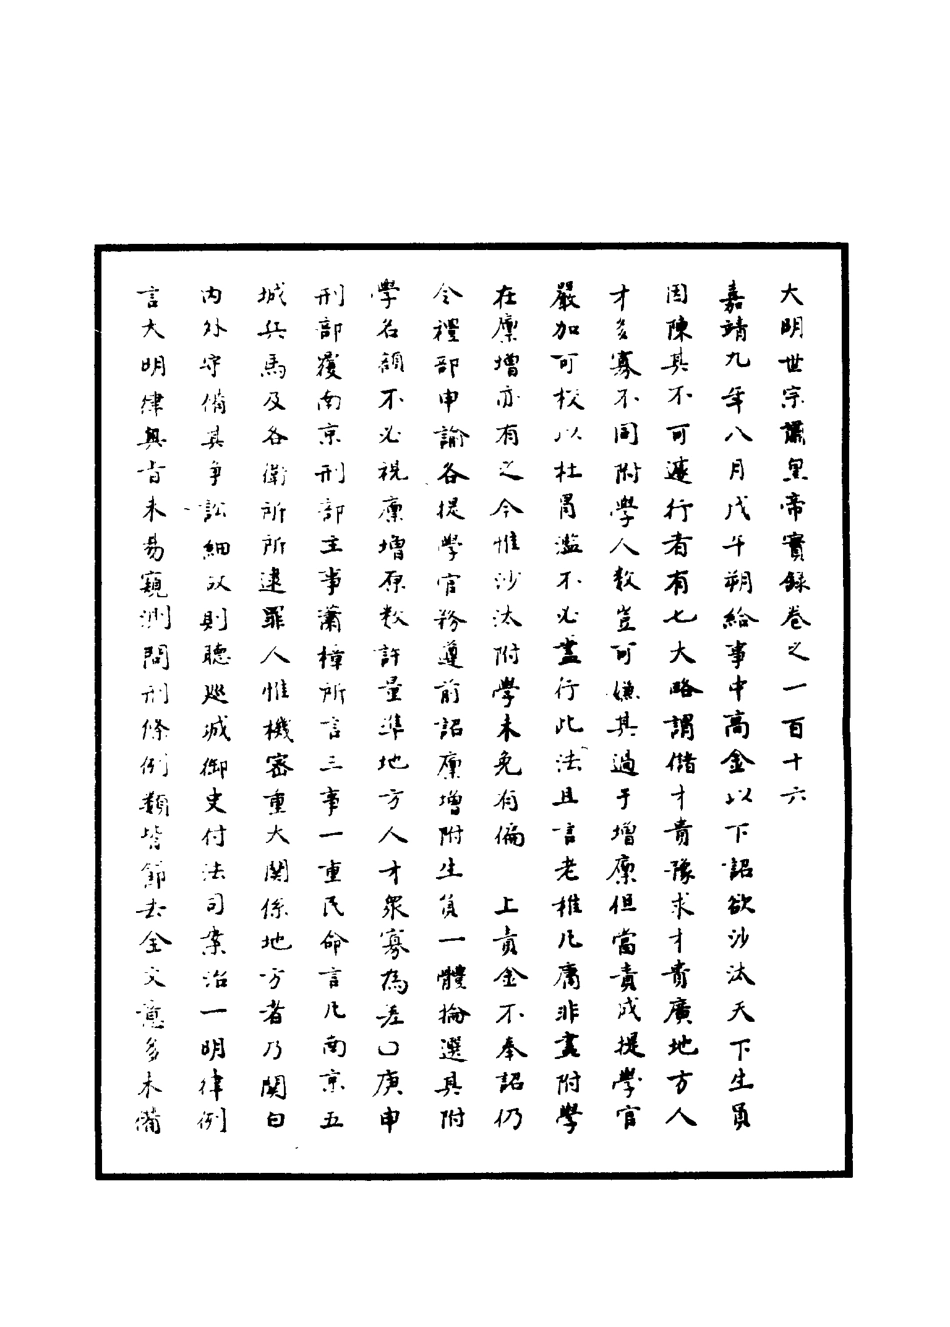 大明世宗肅皇帝實錄卷之一百十六
嘉靖九年八月戊午朔給事中高金以下詔欲沙汰天下生員
因陳其不可遽行者有七大略謂儲才貴豫求才貴廣地方人
才多寡不同附學人数豈可嫌其過于增廩但當責成提學官
嚴加可校以杜冐濫不必盡行此法且言老稚凡庸非盡附學
在廩增亦有之今惟沙汰附學未免有偏　上責金不奉詔仍
令禮部申諭各提學官務遵前詔廩增附生負一體掄選其附
學名額不必視廩增原数許量凖地方人才衆寡為差〇庚申
刑部覆南京刑部主事蕭樟所言三事一重民命言凡南京五
城兵馬及各衛所所逮罪人惟機密重大関係地方者乃関白
内外守備其爭訟細故則聽廵城御史付法司案治一明律例
言大明律奥旨未易窺測問刑條例類皆節去全文意多未備